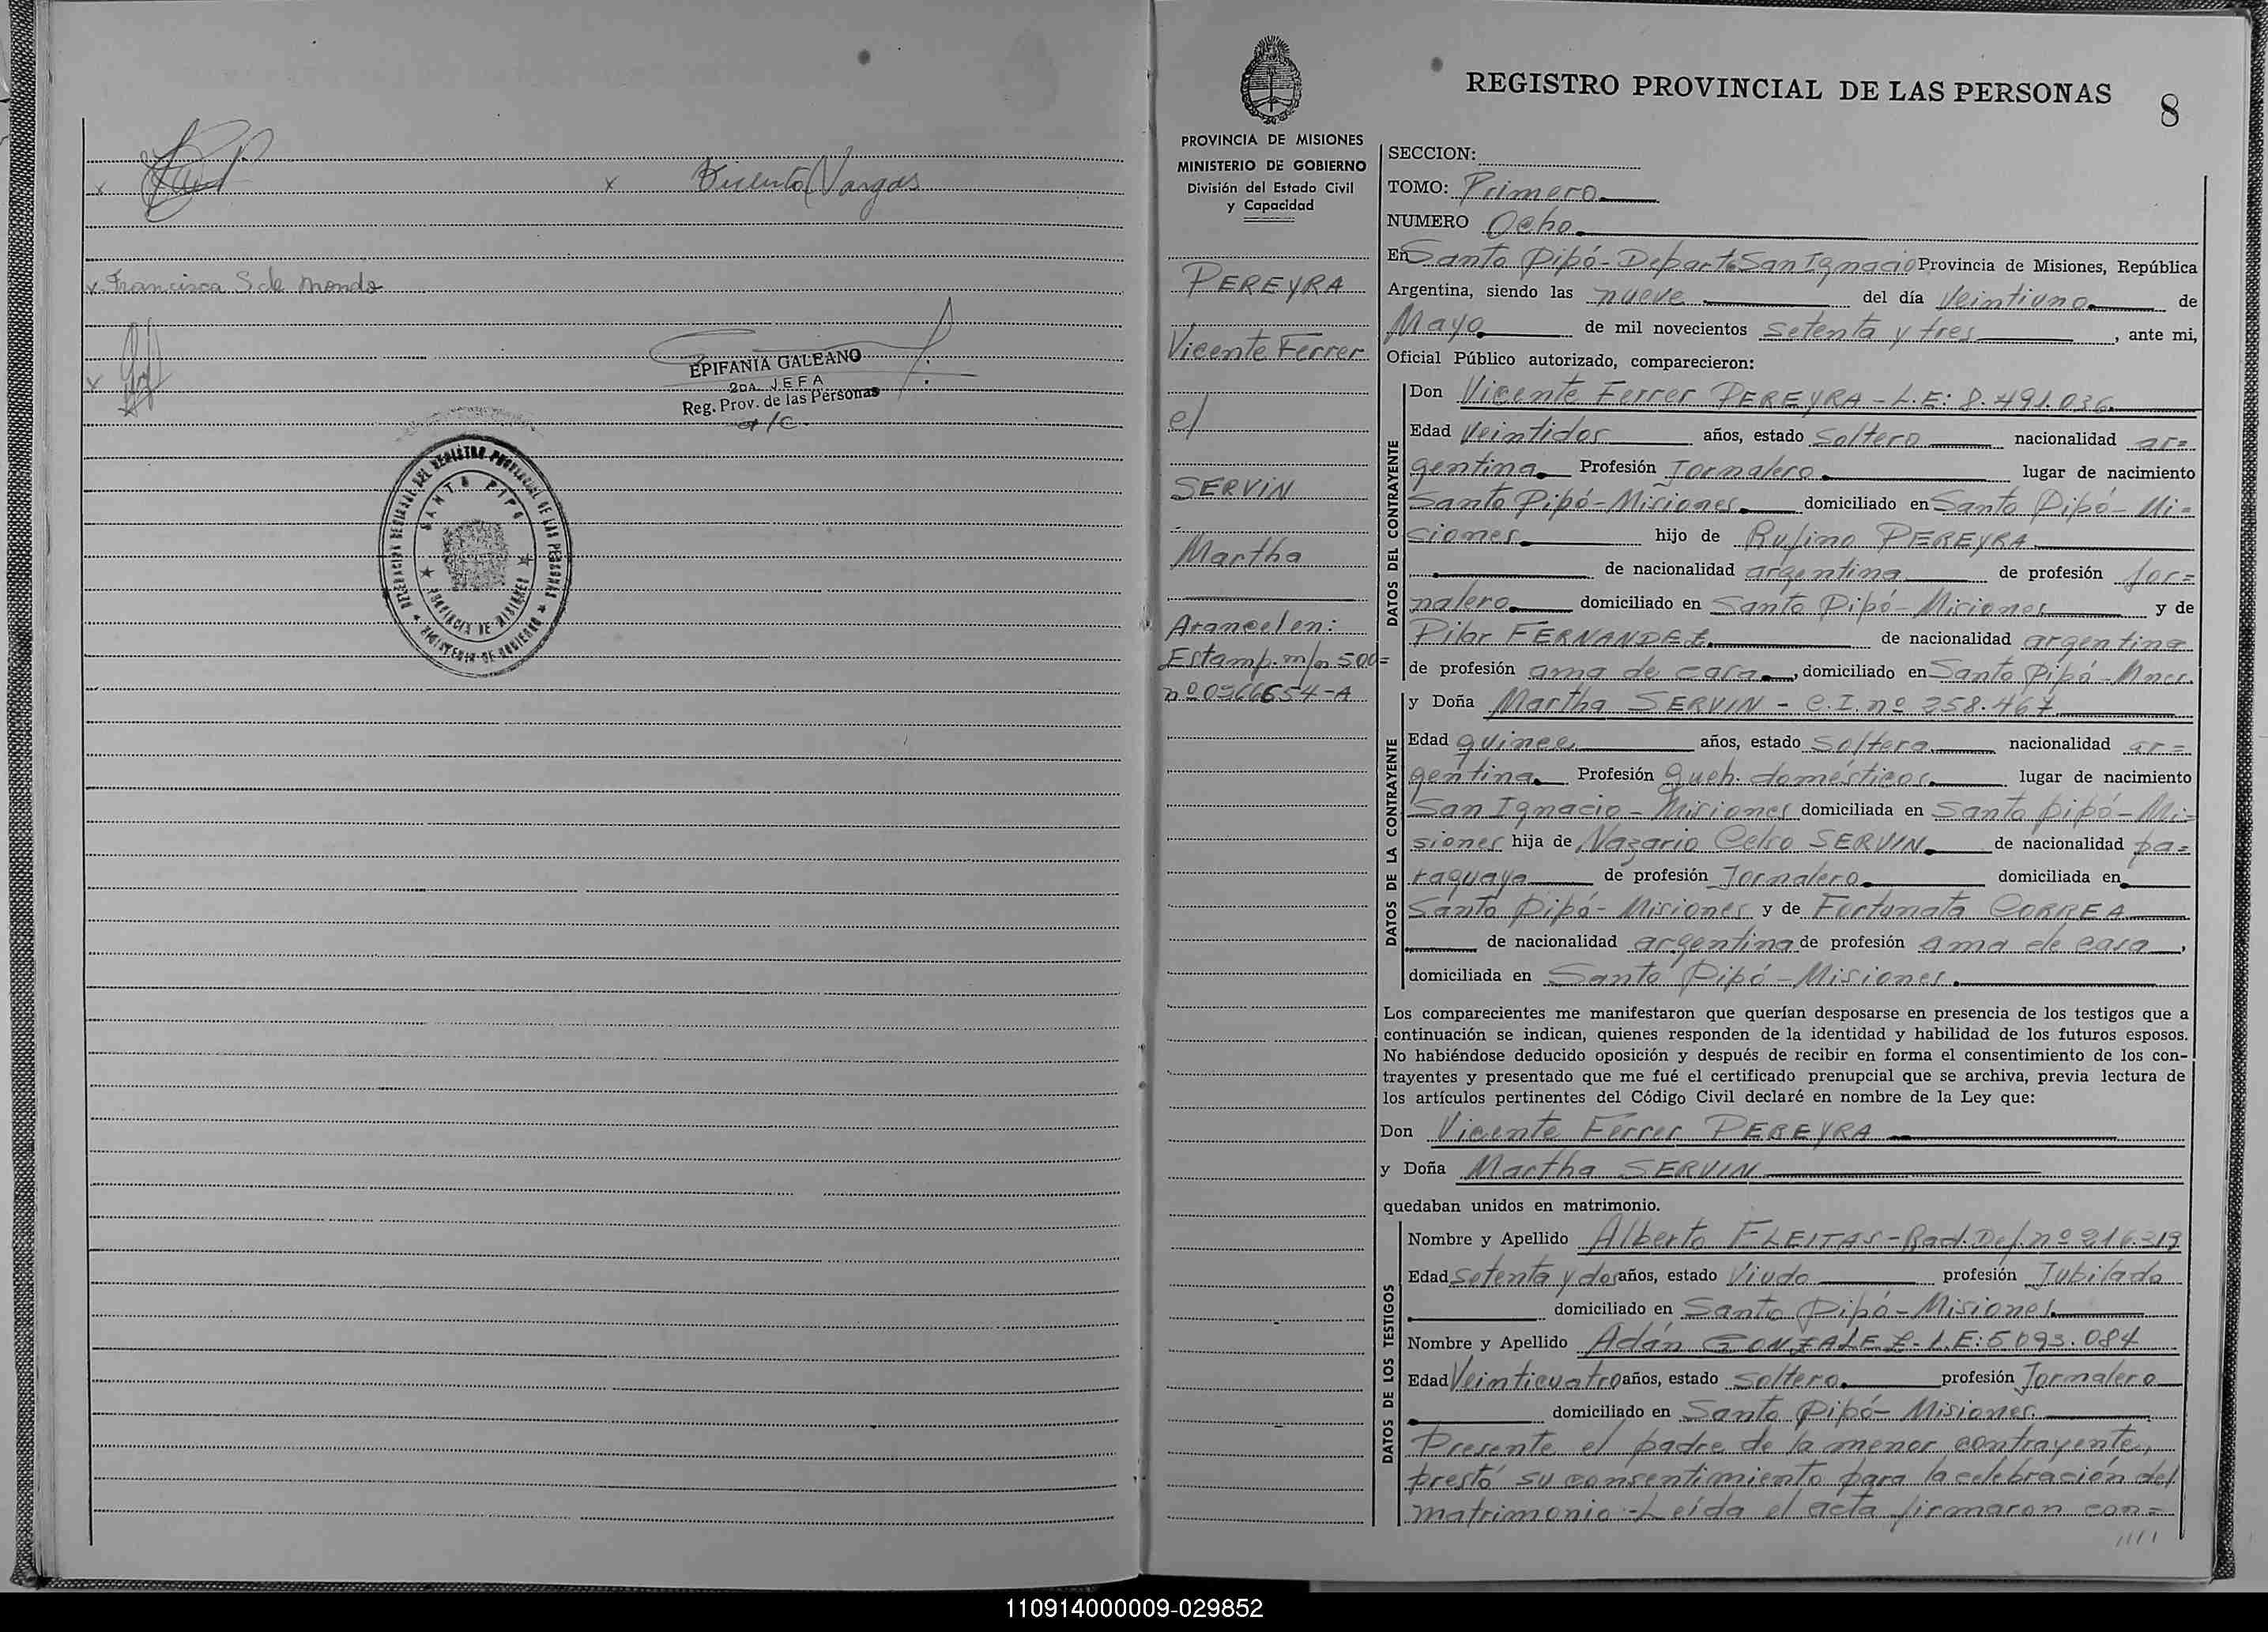 x x Vicente Vargas
x Francisca S de Mendo
x
EPIFANIA GALEANO
2DA. JEFA
Reg. Prov. de las Personas
a/c.
DELEGACION REGIONAL DEL REGISTRO PROVINCIAL DE LAS PERSONAS
★ MINISTERIO DE GOBIERNO ★
SANTO PIPO
★ PROVINCIA DE MISIONES ★
PROVINCIA DE MISIONES
MINISTERIO DE GOBIERNO
División del Estado Civil
y Capacidad
PEREYRA
Vicente Ferrer
el
SERVIN
Martha
Arancel en:
Estamp. m/n 500=
nº 0966654-A
REGISTRO PROVINCIAL DE LAS PERSONAS
8
SECCION:
TOMO: Primero
NUMERO Ocho
En Santo Pipó-Departº San Ignacio Provincia de Misiones, República
Argentina, siendo las nueve del día Veintiuno de
Mayo de mil novecientos setenta y tres, ante mi,
Oficial Público autorizado, comparecieron:
DATOS DEL CONTRAYENTE
Don Vicente Ferrer PEREYRA - L.E: 8.491.036.
Edad Veintidos años, estado Soltero nacionalidad ar=
gentina. Profesión Jornalero. lugar de nacimiento
Santo Pipó-Misiones. domiciliado en Santo Pipó-Mi=
siones. hijo de Rufino PEREYRA
de nacionalidad argentina de profesión Jor=
nalero. domiciliado en Santo Pipó-Misiones y de
Pilar FERNANDEZ. de nacionalidad argentina
de profesión ama de casa., domiciliado en Santo Pipó-Mnes.
DATOS DE LA CONTRAYENTE
y Doña Martha SERVIN - C.I. nº 258.467
Edad quince años, estado Soltera nacionalidad ar=
gentina. Profesión Queh. domésticos. lugar de nacimiento
San Ignacio-Misiones domiciliada en Santo Pipó-Mi=
siones hija de Nazario Celso SERVIN. de nacionalidad pa=
raguaya de profesión Jornalero. domiciliada en
Santo Pipó-Misiones y de Fortunata CORREA
de nacionalidad argentina de profesión ama de casa,
domiciliada en Santo Pipó-Misiones.
Los comparecientes me manifestaron que querían desposarse en presencia de los testigos que a
continuación se indican, quienes responden de la identidad y habilidad de los futuros esposos.
No habiéndose deducido oposición y después de recibir en forma el consentimiento de los con-
trayentes y presentado que me fué el certificado prenupcial que se archiva, previa lectura de
los artículos pertinentes del Código Civil declaré en nombre de la Ley que:
Don Vicente Ferrer PEREYRA
y Doña Martha SERVIN
quedaban unidos en matrimonio.
DATOS DE LOS TESTIGOS
Nombre y Apellido Alberto FLEITAS-Rad. Def. nº 216.219
Edad Setenta y dos años, estado Viudo profesión Jubilado
domiciliado en Santo Pipó-Misiones.
Nombre y Apellido Adán GONZALEZ-L.E: 5.093.084
Edad Veinticuatro años, estado soltero. profesión Jornalero
domiciliado en Santo Pipó-Misiones.
Presente el padre de la menor contrayente,
prestó su consentimiento para la celebración del
matrimonio.-Leída el acta firmaron con=
////
110914000009-029852